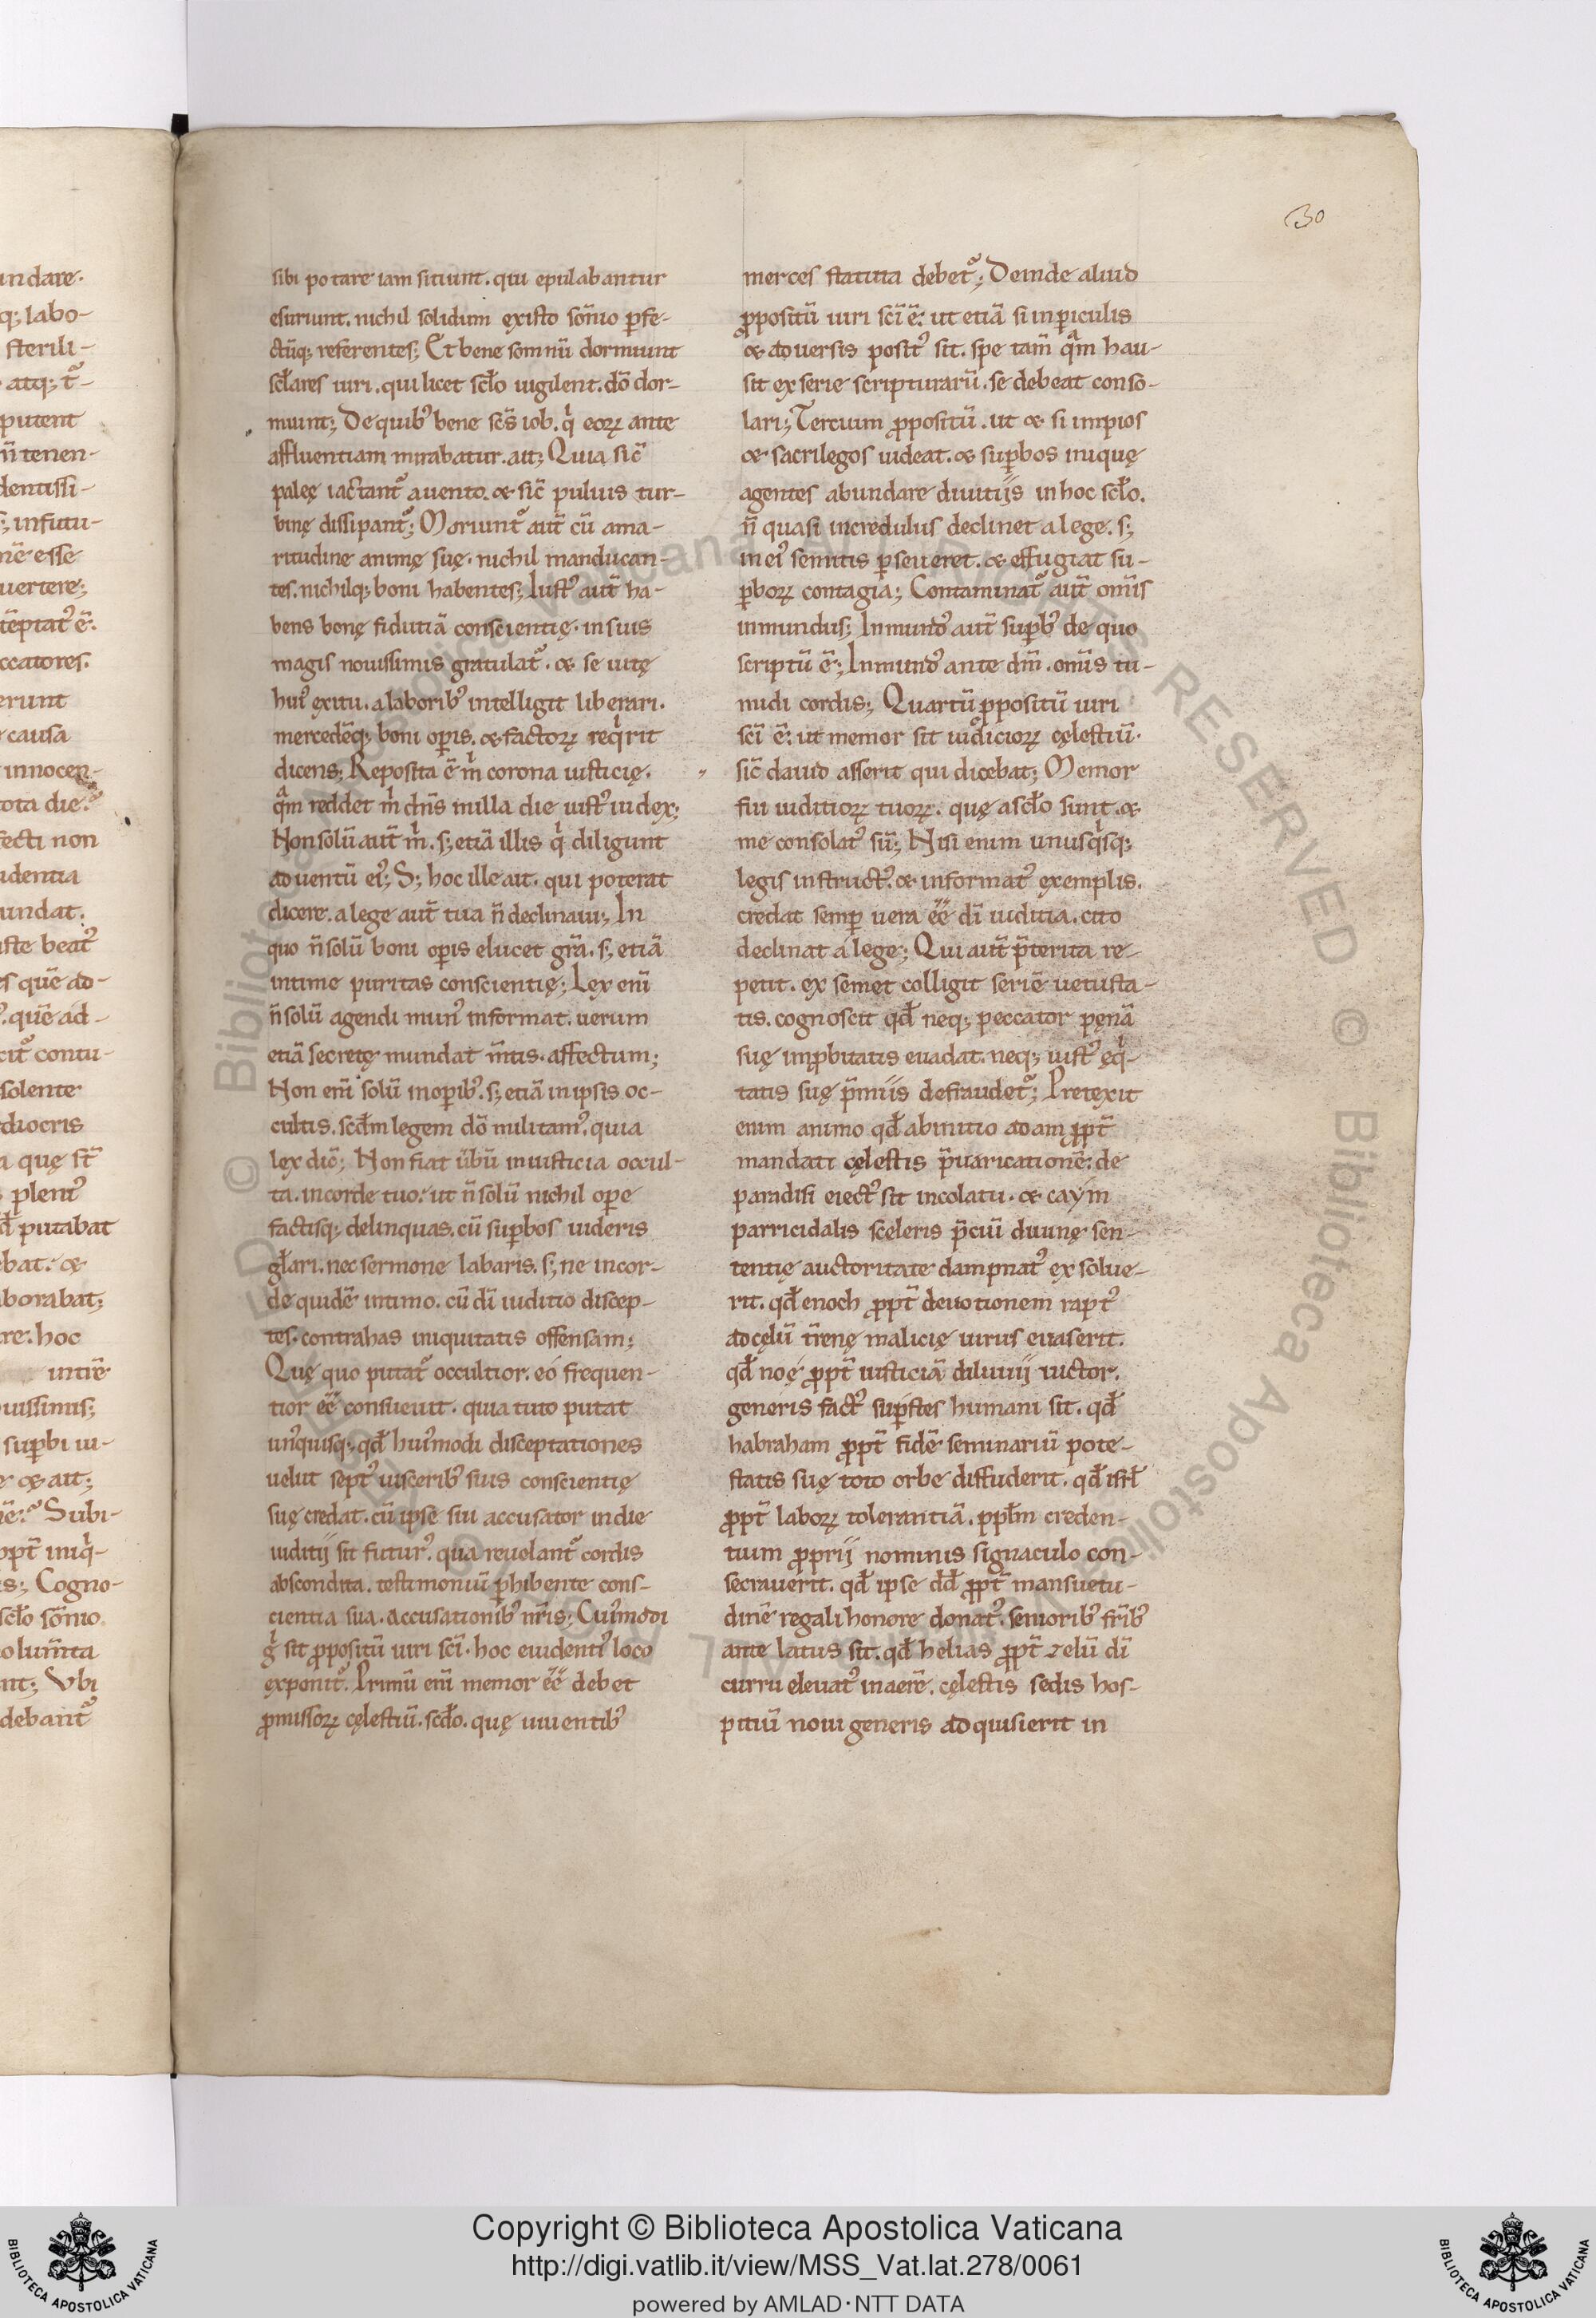 30
undare.
q; labo-
sterili-
atq; t᷒-
putent
n̄ tenen-
dentissi-
s; infutu-
nē esse
uertere;
tēptat᷒ ē.
ccatores.
erunt
causa
innocen-
tota die.
fecti non
identia
undat.
iste beat᷒
es quē ad-
᷒. quē ad-
cit᷒ contu-
solente
diocris
a quę st̄
plent᷒
d̄ putabat
ebat. &
aborabat;
re. hoc
intrē
ouissimis;
supbi ui-
& ait;
Subi-
ppt̄ iniqͥ-
is; Cogno-
scło sōnio
olum̄ta
nt; Vbi
debant᷒
sibi potare iam sitiunt. qui epulabantur
esuriunt. nichil solidum ęxisto sōnio ꝑfe-
ctūq; referentes; Et bene somnū dormiunt
scłares uiri. qui licet scło uigilent. dō dor-
miunt; De quib᷒ bene scs̄ iob. qͥ eoꝝ ante
affluentiam mirabatur. ait; Quia sic̄
paleę iactant᷒ auento. & sic̄ puluis tur-
binę dissipant᷒; Moriunt᷒ aut̄ cū ama-
ritudine animę suę. nichil manducan-
tes. nichilq; boni habentes; Iust᷒ aut̄ ha-
bens bonę fidutiā conscientię. in suis
magis nouissimis gratulat᷒. & se uitę
hui᷒ ęxitu. a laborib᷒ intelligit liberari.
mercedēq; boni oꝑis. & factoꝝ reqͥrit
dicens; Reposita ē mͥ corona iusticię.
qͣm reddet mͥ dn̄s in illa die iust᷒ iudex;
Non solū aut̄ mͥ. s; etiā illis qͥ diligunt
aduentū ei᷒; S; hoc ille ait. qui poterat
dicere. a lege aut̄ tua n̄ declinaui; In
quo n̄ solū boni oꝑis elucet grā. s; etiā
intime puritas conscientię; Lex enī
n̄ solū agendi mun᷒ informat. uerum
etiā secretę mundat m̄tis. affectum;
Non enī solū in oꝑib᷒. s; etiā in ipsis oc-
cultis. scd̄m legem dō militam᷒. quia
lęx dic̄; Non fiat ūbū iniusticia occul-
ta. incorde tuo. ut n̄ solū nichil oꝑe
factisq; delinquas. cū suꝑbos uideris
gł̄ari. nec sermone labaris. s; ne incor-
de quidē intimo. cū dī iuditio discep-
tes. contrahas iniquitatis offensam;
Quę quo putat᷒ occultior. eó frequen-
tior eē̄ consueuit. quia tuto putat
un᷒quisq; qd̄ hui᷒modi disceptationes
uelut sept᷒ uiscerib᷒ suis conscientię
suę credat. cū ipse sui accusator in die
iuditij sit futur᷒. qua reuelant᷒ cordis
abscondita. testimoniū ꝑhibente cons-
cientia sua. accusationib᷒ nr̄is; Cui᷒modi
gͥ sit ꝓpositū uiri scī. hoc euident᷒ loco
ęxponit᷒. Primū enī memor eē̄ debet
ꝓmissoꝝ cęlestiū. scd̄o. quę uiuentib᷒
merces statuta debet᷒; Deinde aliud
ꝓpositū uiri scī ē. ut etiā si in ꝑiculis
& aduersis posit᷒ sit. spe tam̄ qͣm hau-
sit ex serie scripturarū. se debeat conso-
lari; Tercium ꝓpositū. ut & si impios
& sacrilegos uideat. & suꝑbos iniquę
agentes abundare diuitijs in hoc scło.
n̄ quasi incredulus declinet a lege. s;
in ei᷒ semitis ꝑseueret. & effugiat su-
ꝑboꝝ contagia; Contaminat᷒ aut̄ om̄is
inmundus; Inmund᷒ aut̄ suꝑb᷒ de quo
scriptū ē; Inmund᷒ ante dm̄. om̄is tu-
midi cordis; Quartū ꝓpositū uiri
scī ē. ut memor sit iudicioꝝ cęlestiū.
sic̄ dauid asserit qui dicebat; Memor
fui iuditioꝝ tuoꝝ. quę a scło sunt. &
me consolat᷒ sū; Nisi enim unusqͥsq;
legis instruct᷒. & informat᷒ exemplis.
credat semꝑ uera eē̄ dī iuditia. cito
declinat a lege; Qui aut̄ p̄terita re-
petit. ex semet colligit seriē uetusta-
tis. cognoscit qd̄ neq; peccator pęnā
suę imꝓbitatis euadat. neq; iust᷒ ęqͥ-
tatis suę p̄miis defraudet᷒; Pretexit
enim animo qd̄ abinitio adam ꝓpt̄
mandati cęlestis p̄uaricationē. de
paradisi eiect᷒ sit incolatu. & caym
parricidalis sceleris p̄ciū diuinę sen-
tentię auctoritate dampnat᷒ exsolue-
rit. qd̄ enoch ꝓpt̄ deuotionem rapt᷒
ad cęlū t̄renę malicię uirus euaserit.
qd̄ noę ꝓpt̄ iusticiā diluuij uictor.
generis fact᷒ suꝑstes humani sit. qd̄
habraham ꝓpt̄ fidē seminariū pote-
statis suę toto orbe diffuderit. qd̄ isrł
ꝓpt̄ laboꝝ tolerantiā. ppłm creden-
tium ꝓprij nominis signaculo con-
secrauerit. qd̄ ipse dd̄ ꝓpt̄ mansuetu-
dinē regali honore donat᷒.seniorib᷒ fr̄ib᷒
ante latus sit. qd̄ helias ꝓpt̄ zelū dī
curru eleuat᷒ in aerē. cęlestis sedis hos-
pitiū noui generis adquisierit in
© Biblioteca Apostolica Vaticana ALL RIGHTS RESERVED
Copyright © Biblioteca Apostolica Vaticana
http://digi.vatlib.it/view/MSS_Vat.lat.278/0061
powered by AMLAD·NTT DATA
BIBLIOTECA APOSTOLICA VATICANA
BIBLIOTECA APOSTOLICA VATICANA